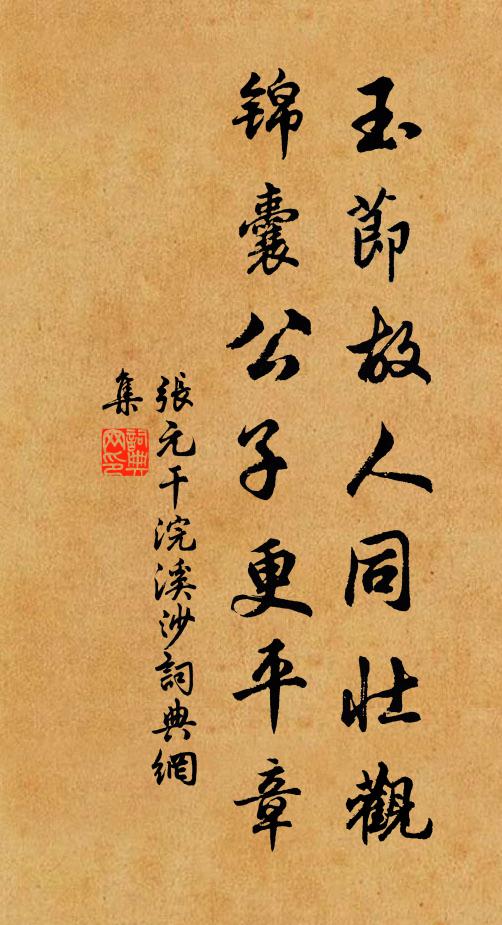 玉節故人同壯觀
锦囊公子更平章
張元干浣溪沙詞典網
集
詞典
网印